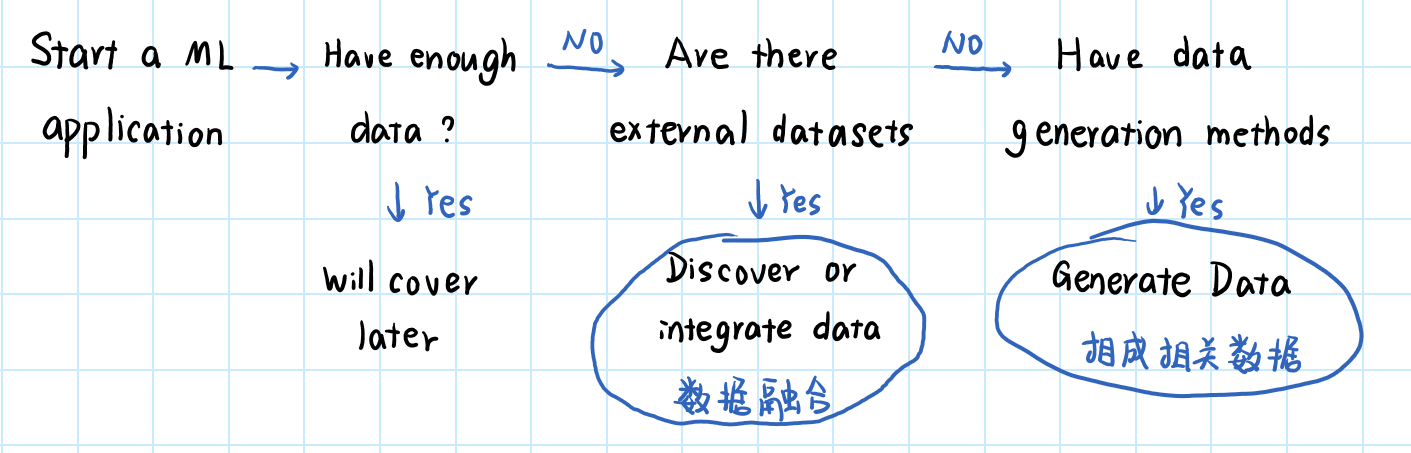 Start a ML
application
Have enough
data ?
NO
Are there
external datasets
NO
Have data
generation methods
Yes
will cover
later
Yes
Discover or
integrate data
数据融合
Yes
Generate Data
相成相关数据